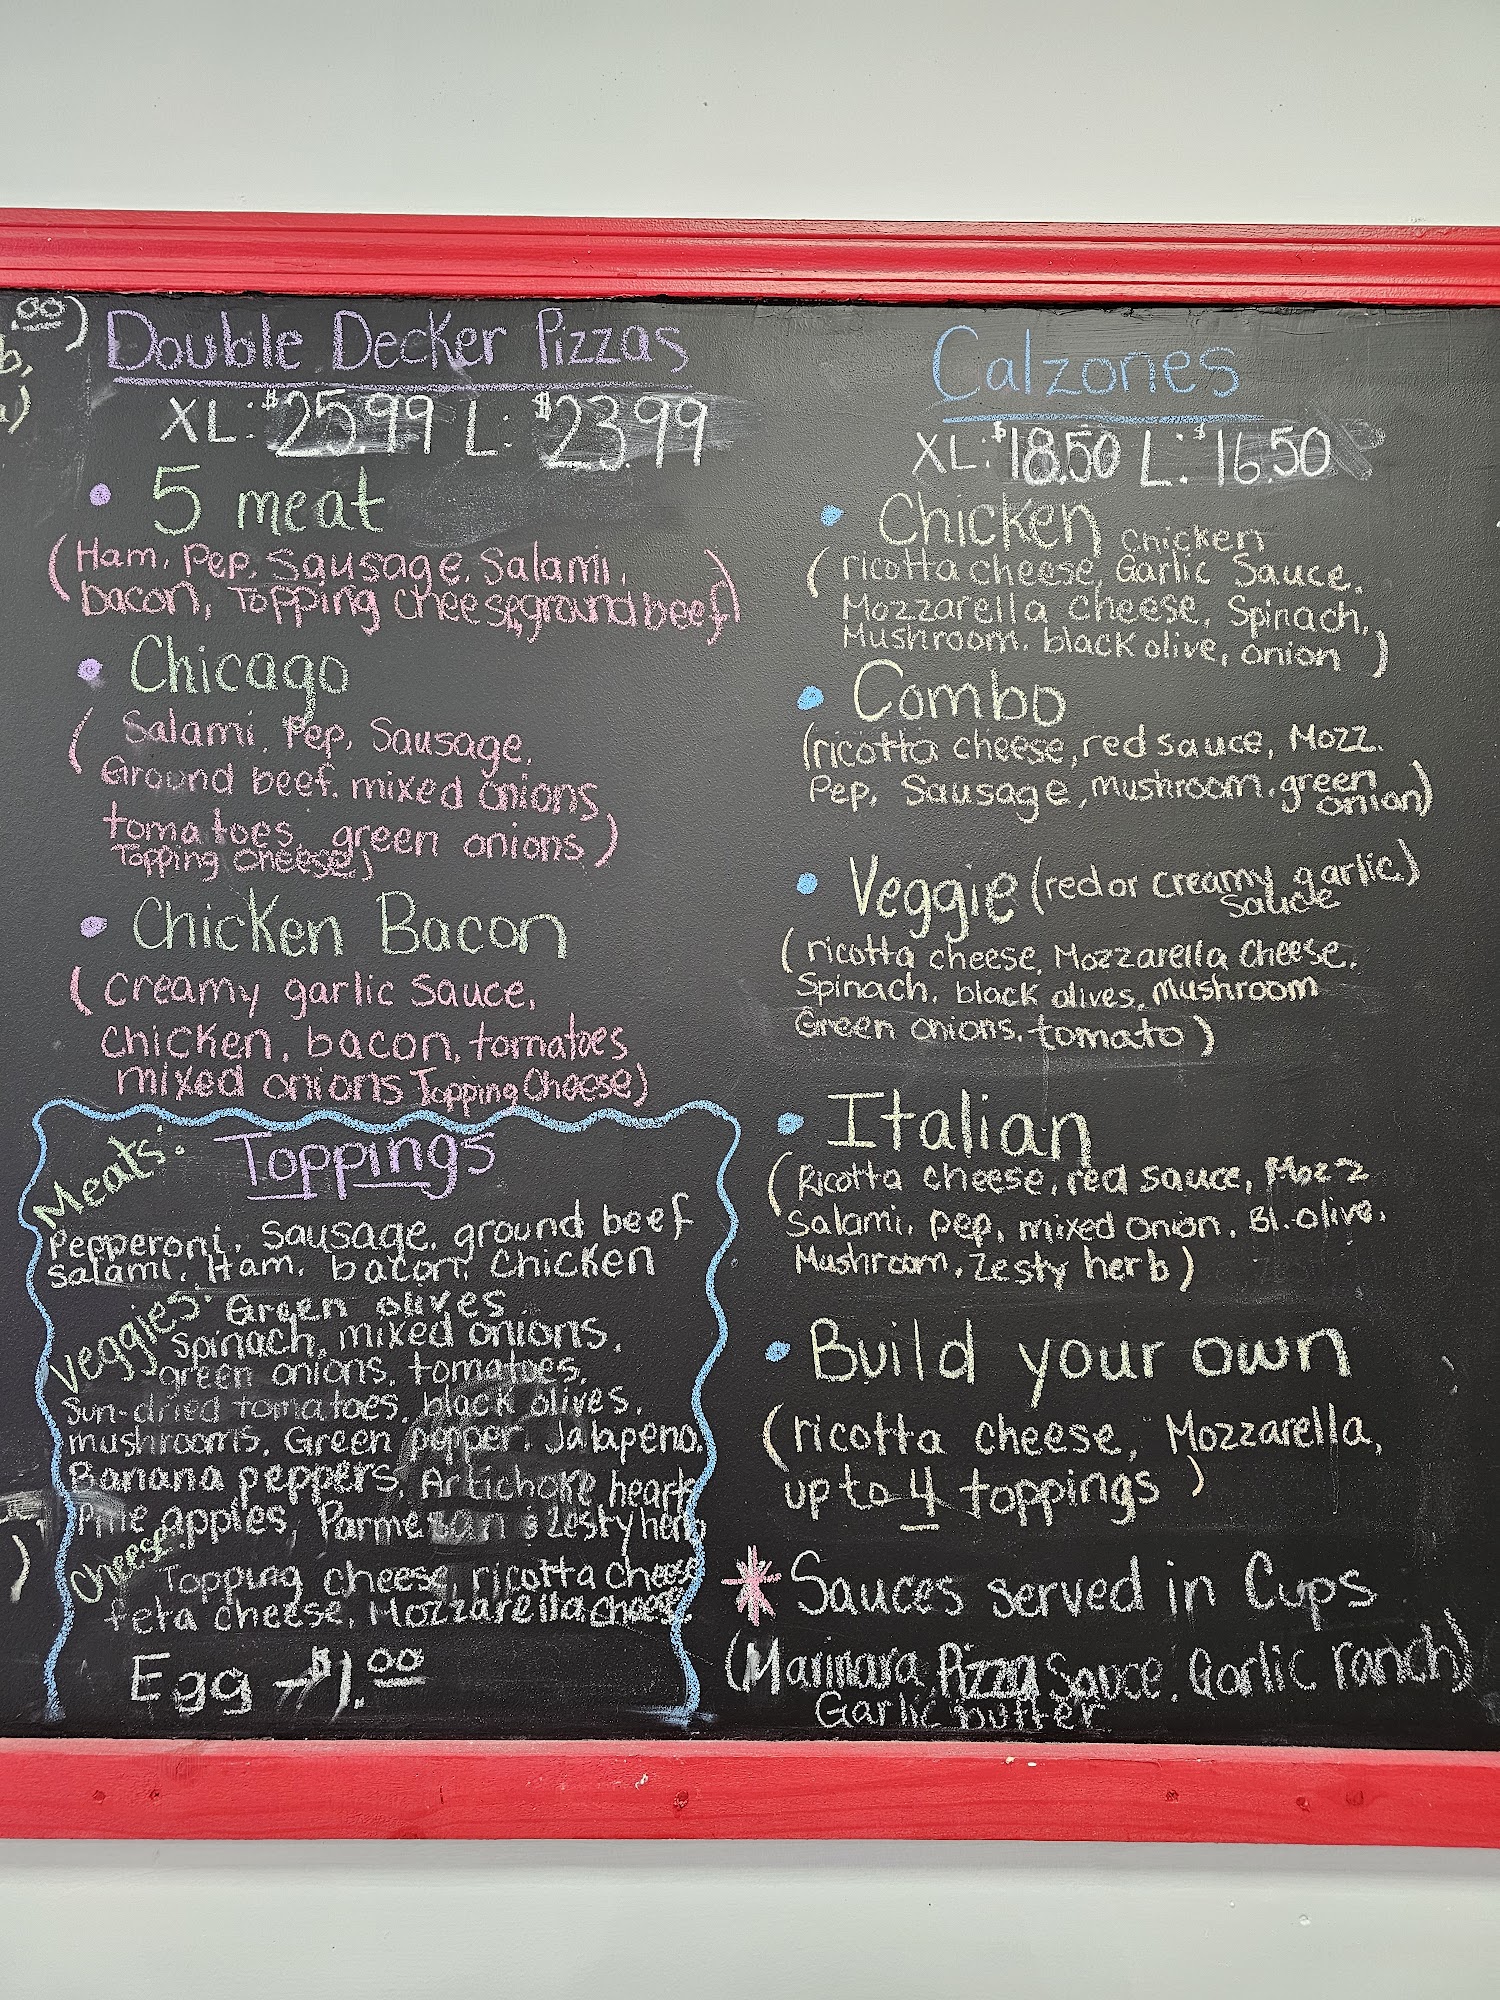 .00)
b,
a)
Double Decker Pizzas
XL: $25.99 L: $23.99
• 5 meat
(Ham, Pep, Sausage, Salami,
bacon, Topping cheese, ground beef)
• Chicago
(Salami, Pep, Sausage,
Ground beef, mixed onions,
tomatoes, green onions)
Topping cheese)
• Chicken Bacon
(creamy garlic sauce,
chicken, bacon, tomatoes
mixed onions Topping Cheese)
Toppings
Meats:
Pepperoni, Sausage, ground beef
Salami, Ham, bacon, Chicken
Veggies: Green olives
Spinach, mixed onions,
green onions, tomatoes,
Sun-dried tomatoes, black olives,
mushrooms, Green pepper, Jalapeno,
Banana peppers, Artichoke hearts
Pine apples, Parmesan & Zesty herb
Cheese:
Topping cheese, ricotta cheese
feta cheese, Mozzarella cheese,
Egg - $1.00
)
Calzones
XL: $18.50 L: $16.50
• Chicken chicken
(ricotta cheese, Garlic Sauce,
Mozzarella cheese, Spinach,
Mushroom, black olive, onion)
• Combo
(ricotta cheese, red sauce, Mozz.
Pep, Sausage, mushroom, green
onion)
• Veggie (red or creamy garlic)
sauce
(ricotta cheese, Mozzarella Cheese,
Spinach, black olives, Mushroom
Green onions, tomato)
• Italian
(Ricotta cheese, red sauce, Mozz
Salami, pep, mixed onion, Bl. olive,
Mushroom, Zesty herb)
• Build your own
(ricotta cheese, Mozzarella,
up to 4 toppings)
* Sauces served in Cups
(Marinara, Pizza Sauce, Garlic ranch)
Garlic butter